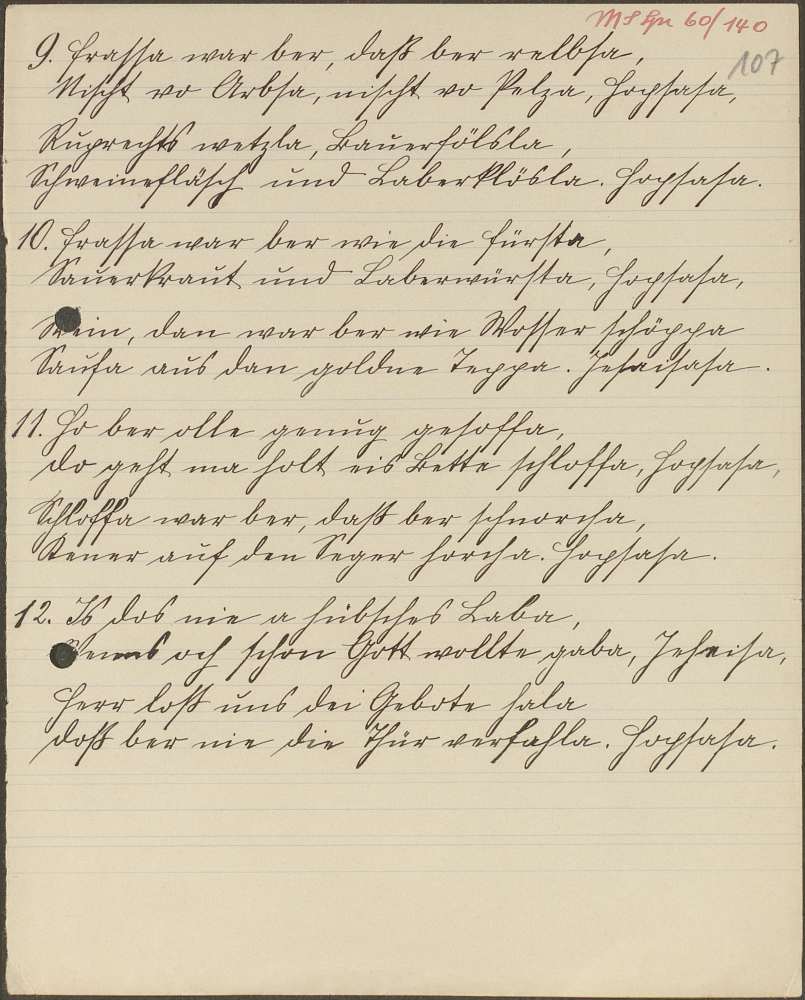 MS Hn 60/140
107
9. Frassa war ber, daß ber relbsa,
Nischt vo Arbsa, nischt vo Pelza, Hopsasa,
Ruprechts wetzla, Bauerfölsla,
Schweinefläsch und Laberklösla. Hopsasa.
10. Frassa war ber wie die Fürsta,
Sauerkraut und Laberwürsta, Hopsasa,
Wein, dan war ber wie Wosser schöppa
Saufa aus dan goldne Teppa. Jehaisasa.
11. Ho ber olle genug gesoffa,
do geht ma holt eis Bette schloffa, Hopsasa,
Schloffa war ber, daß ber schnorcha,
Kener auf den Seger horcha. Hopsasa.
12. Is dos nie a hübsches Laba,
Wenns och schon Gott wollte gaba, Jehaisa,
Herr loß uns dei Gebote hala
doß ber nie die Thür verfahla. Hopsasa.